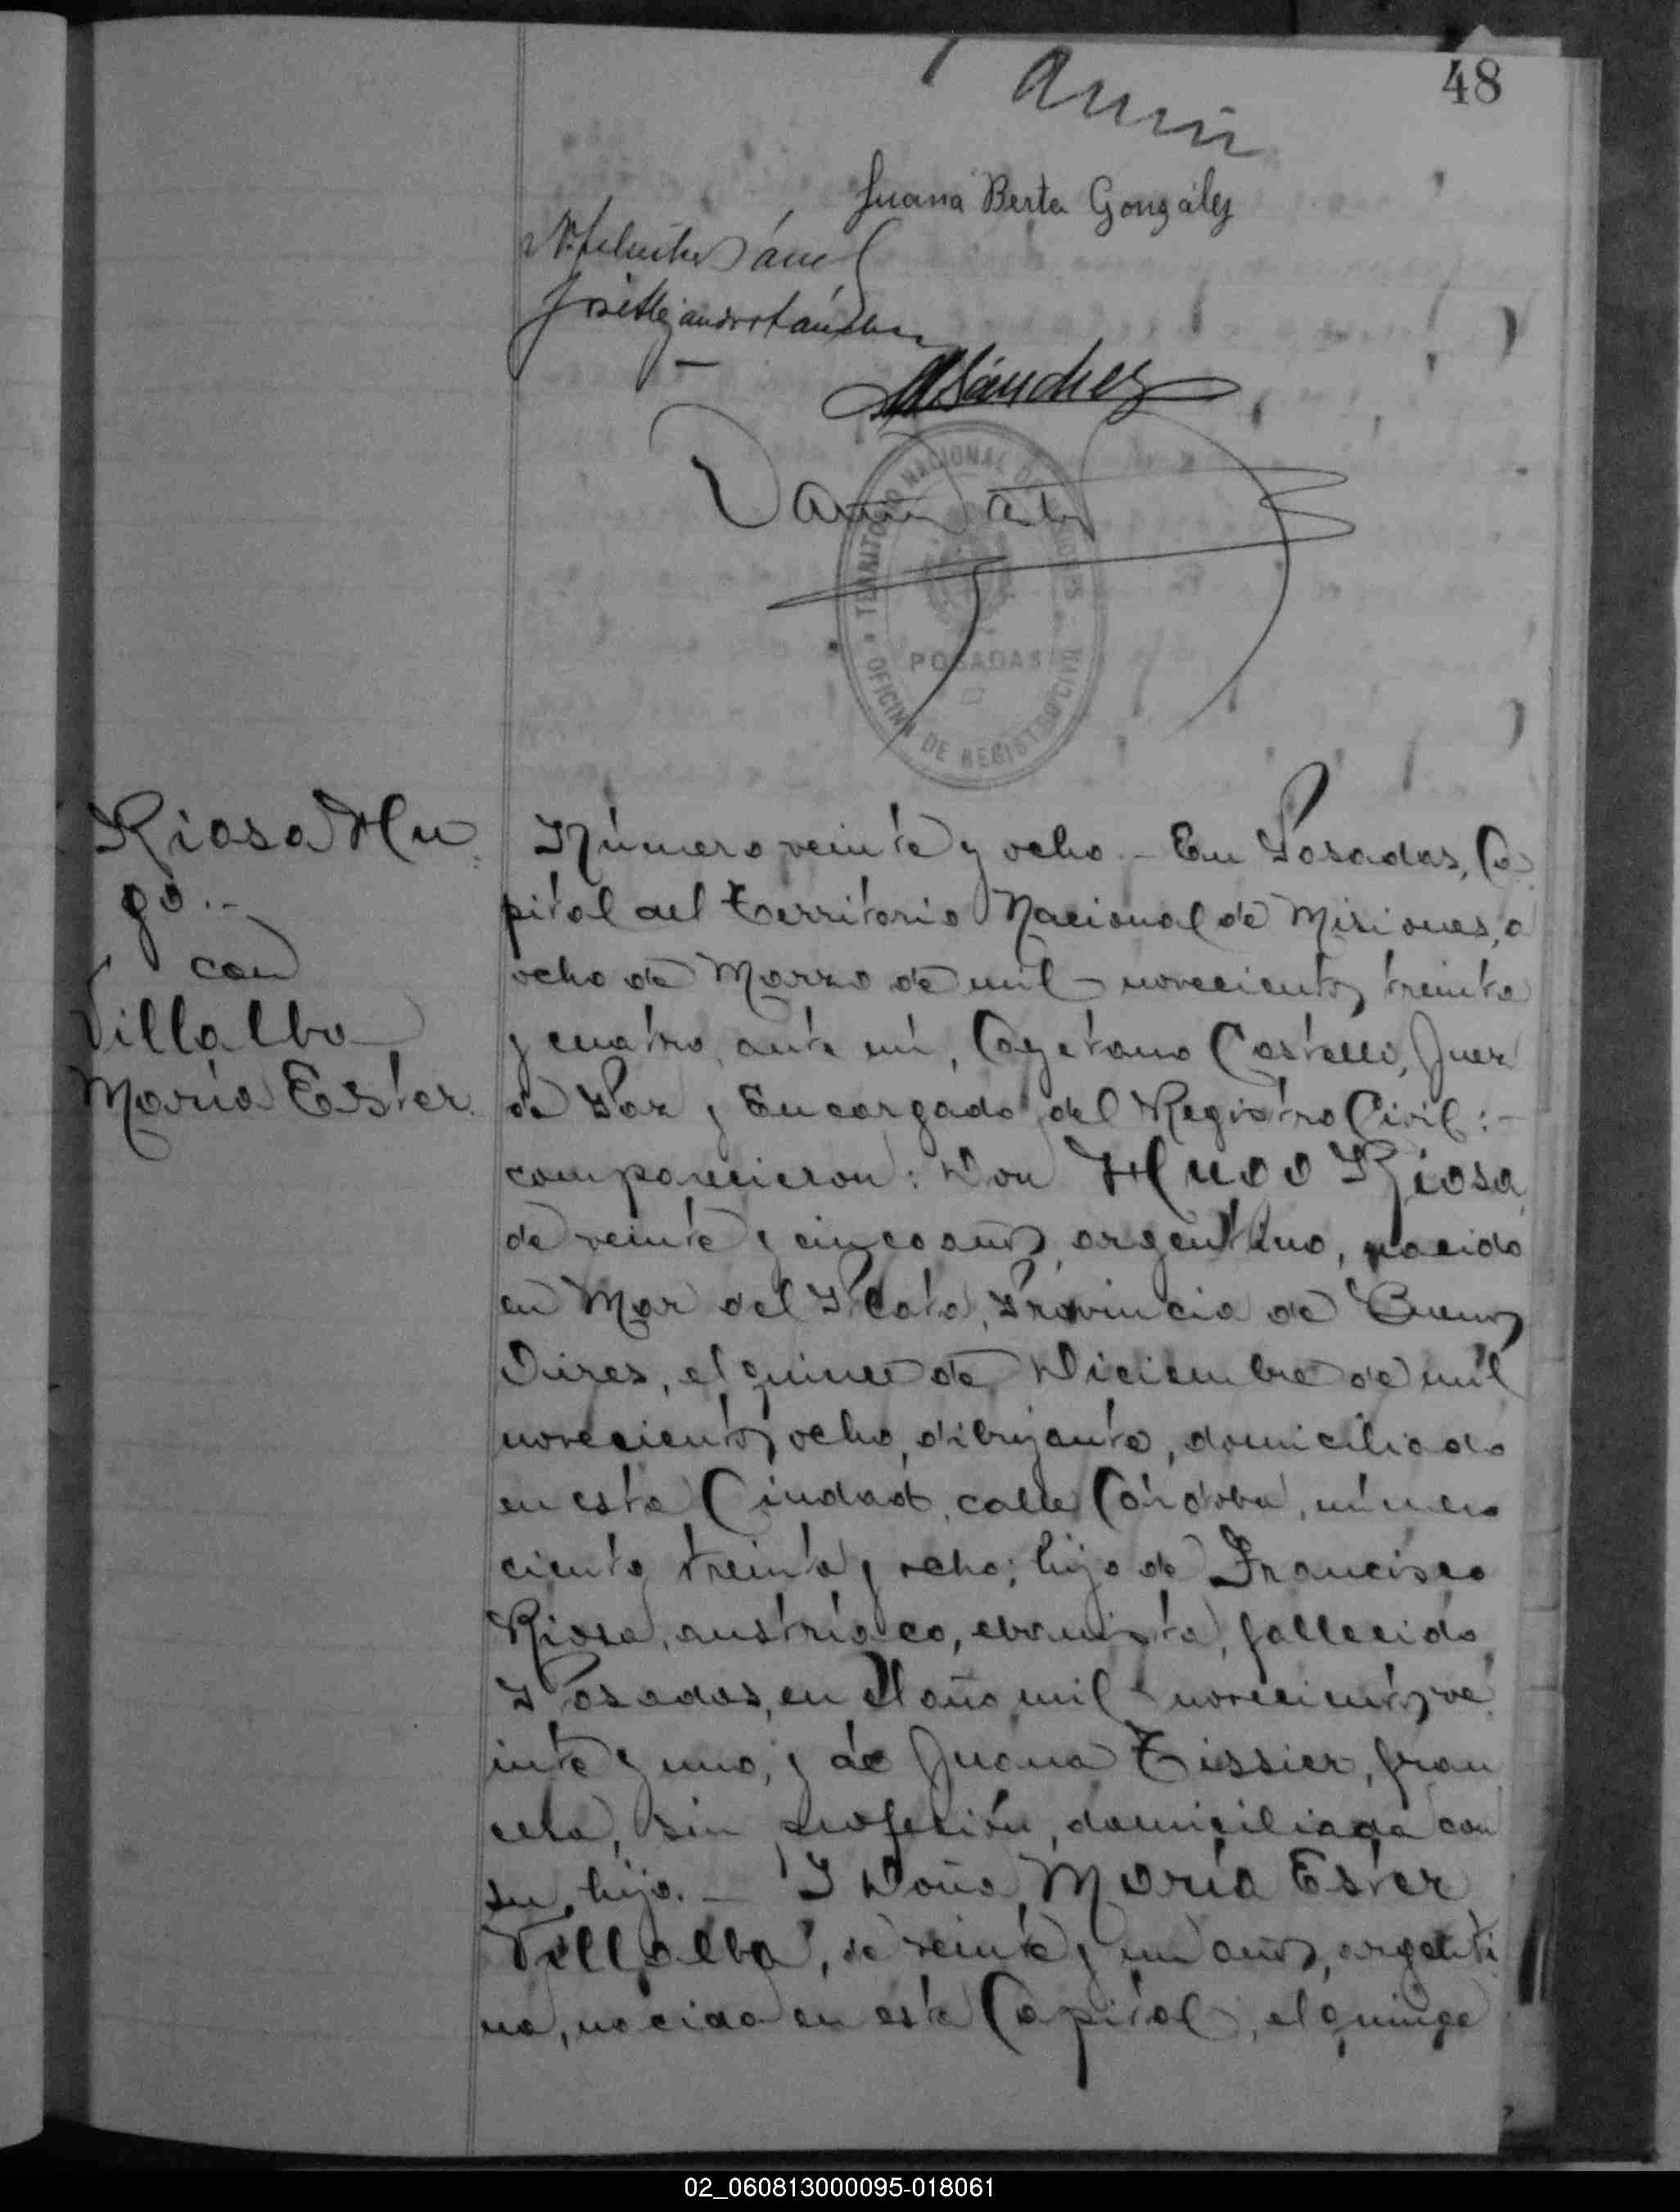 48
Juana Berta González
José Alejandro Sánchez
MSánchez
TERRITORIO NACIONAL DE MISIONES
POSADAS
OFICINA DE REGISTRO CIVIL
Riosa Hu
go..
con
Villalba
María Ester
Número veinte y ocho - En Posadas, Ca
pital del Territorio Nacional de Misiones, a
ocho de Marzo de mil novecientos treinta
y cuatro, ante mí, Cayetano Castelli, Juez
de Paz y Encargado del Registro Civil:-
comparecieron: Don HUGO Riosa
de veinte y cinco años, argentino, nacido
en Mar del Plata, Provincia de Buenos
Aires, el quince de Diciembre de mil
novecientos ocho, dibujante, domiciliado
en esta Ciudad, calle Córdoba, número
ciento treinta y ocho; hijo de Francisco
Riosa, austríaco, ebanista, fallecido
Posadas, en el año mil novecientos ve
inte y uno, y de Juana Tissier, fran
cesa, sin profesión, domiciliada con
su hijo.- Y Doña María Ester
Villalba, de veinte y un años, argenti
na, nacida en esta Capital, el quince
02_060813000095-018061